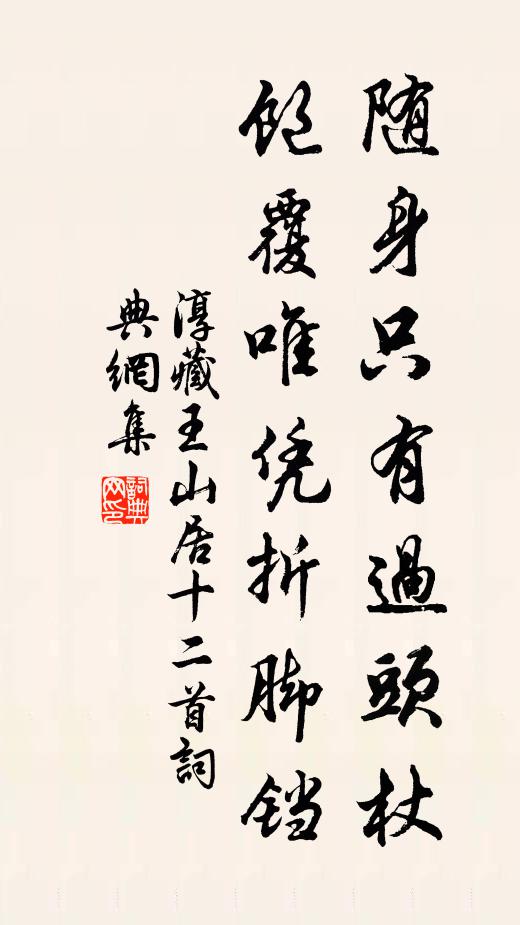 随身只有過頭杖
飽覆唯凭折脚铛
淳藏王山居十二首詞
典網集
詞典
网印